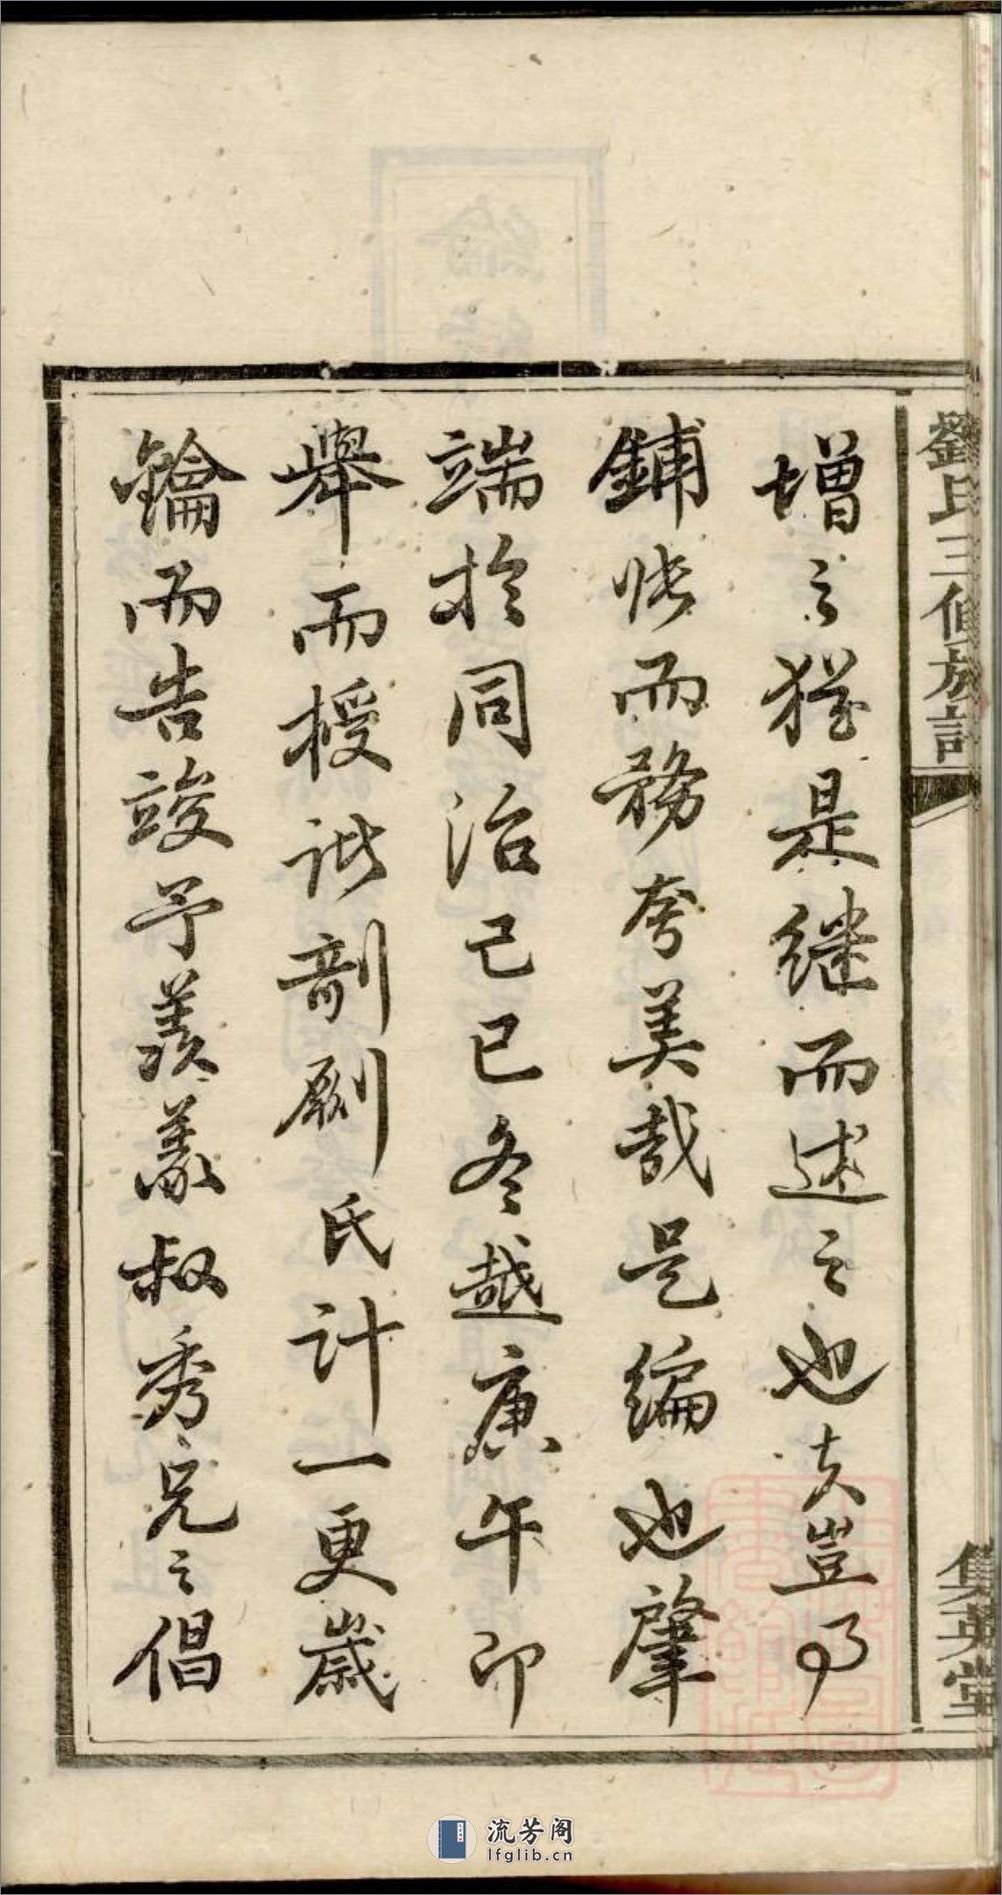 劉氏三修族譜
集英堂
增之猶是繼而述之也夫豈事
鋪張而務夸美哉是編也肇
端於同治己巳冬越庚午印
舉而授諸剞劂氏計一更歲
鑰而告竣予羨羨叔秀兄之倡
流芳阁
lfglib.cn